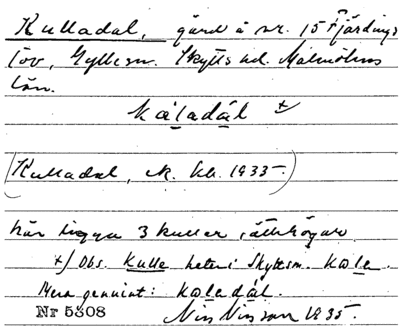 Kulladal, gård å nr. 15 Fjärdings
löv, Gylle sn. Skytts hd. Malmöhus
län.
kaladál x/
(Kulladal, ek. kb. 1935.)
här ligga 3 kullar, ättehögar.
x/ Obs. Kulle heter i Skyttsm. kale.
Mera genuint: kaledál.
Nr 5308 Nils Nilsson 1935.